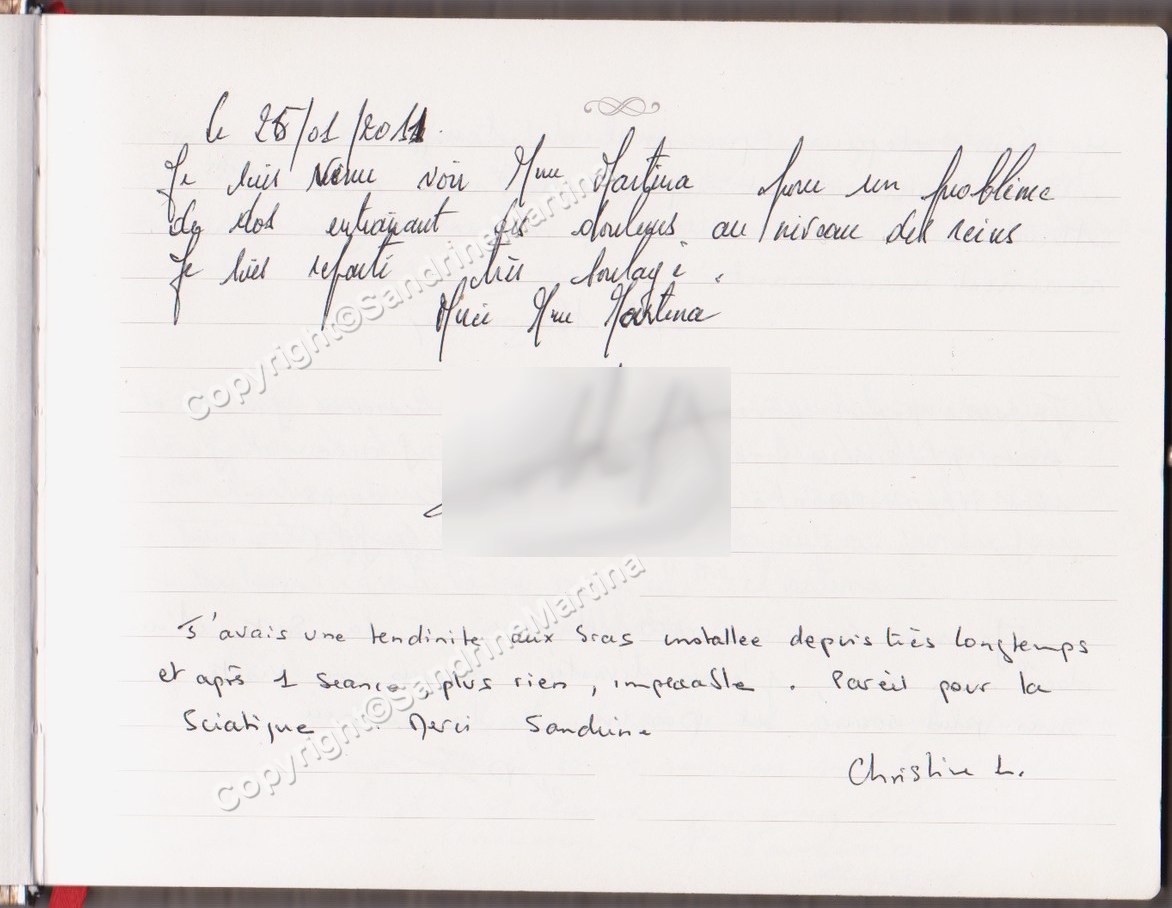 le 25/01/2011.
Je suis venu voir Mme Martina pour un problème
de dos entrainant des douleurs au niveau des reins
Je suis reparti très soulagé.
Merci Mme Martina
J'avais une tendinite aux bras installée depuis très longtemps
et après 1 seance, plus rien, impeccable. Pareil pour la
Sciatique. Merci Sandrine
Christine L.
Copyright©SandrineMartina
Copyright©SandrineMartina